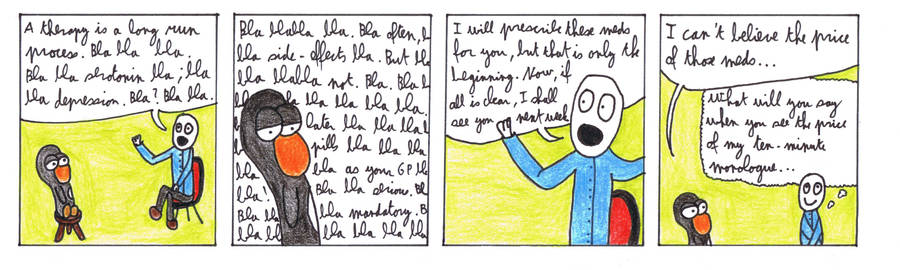 A therapy is a long run
process. Bla bla bla.
Bla bla serotonin bla; bla
bla depression. Bla? Bla bla.
Bla blabla bla. Bla often, b
bla side-effects bla. But bla
bla blabla not. Bla. Bla b
bla bla bla bla bla.
later bla bla bla b
pill bla bla bla
bla bla as your GP bl
bla! Bla bla serious. Bl
Bla bla bla mandatory. B
bla bla bla bla bla bla
I will prescribe these meds
for you, but that is only the
beginning. Now, if
all is clear, I shall
see you next week
I can't believe the price
of those meds...
What will you say
when you see the price
of my ten-minute
monologue...